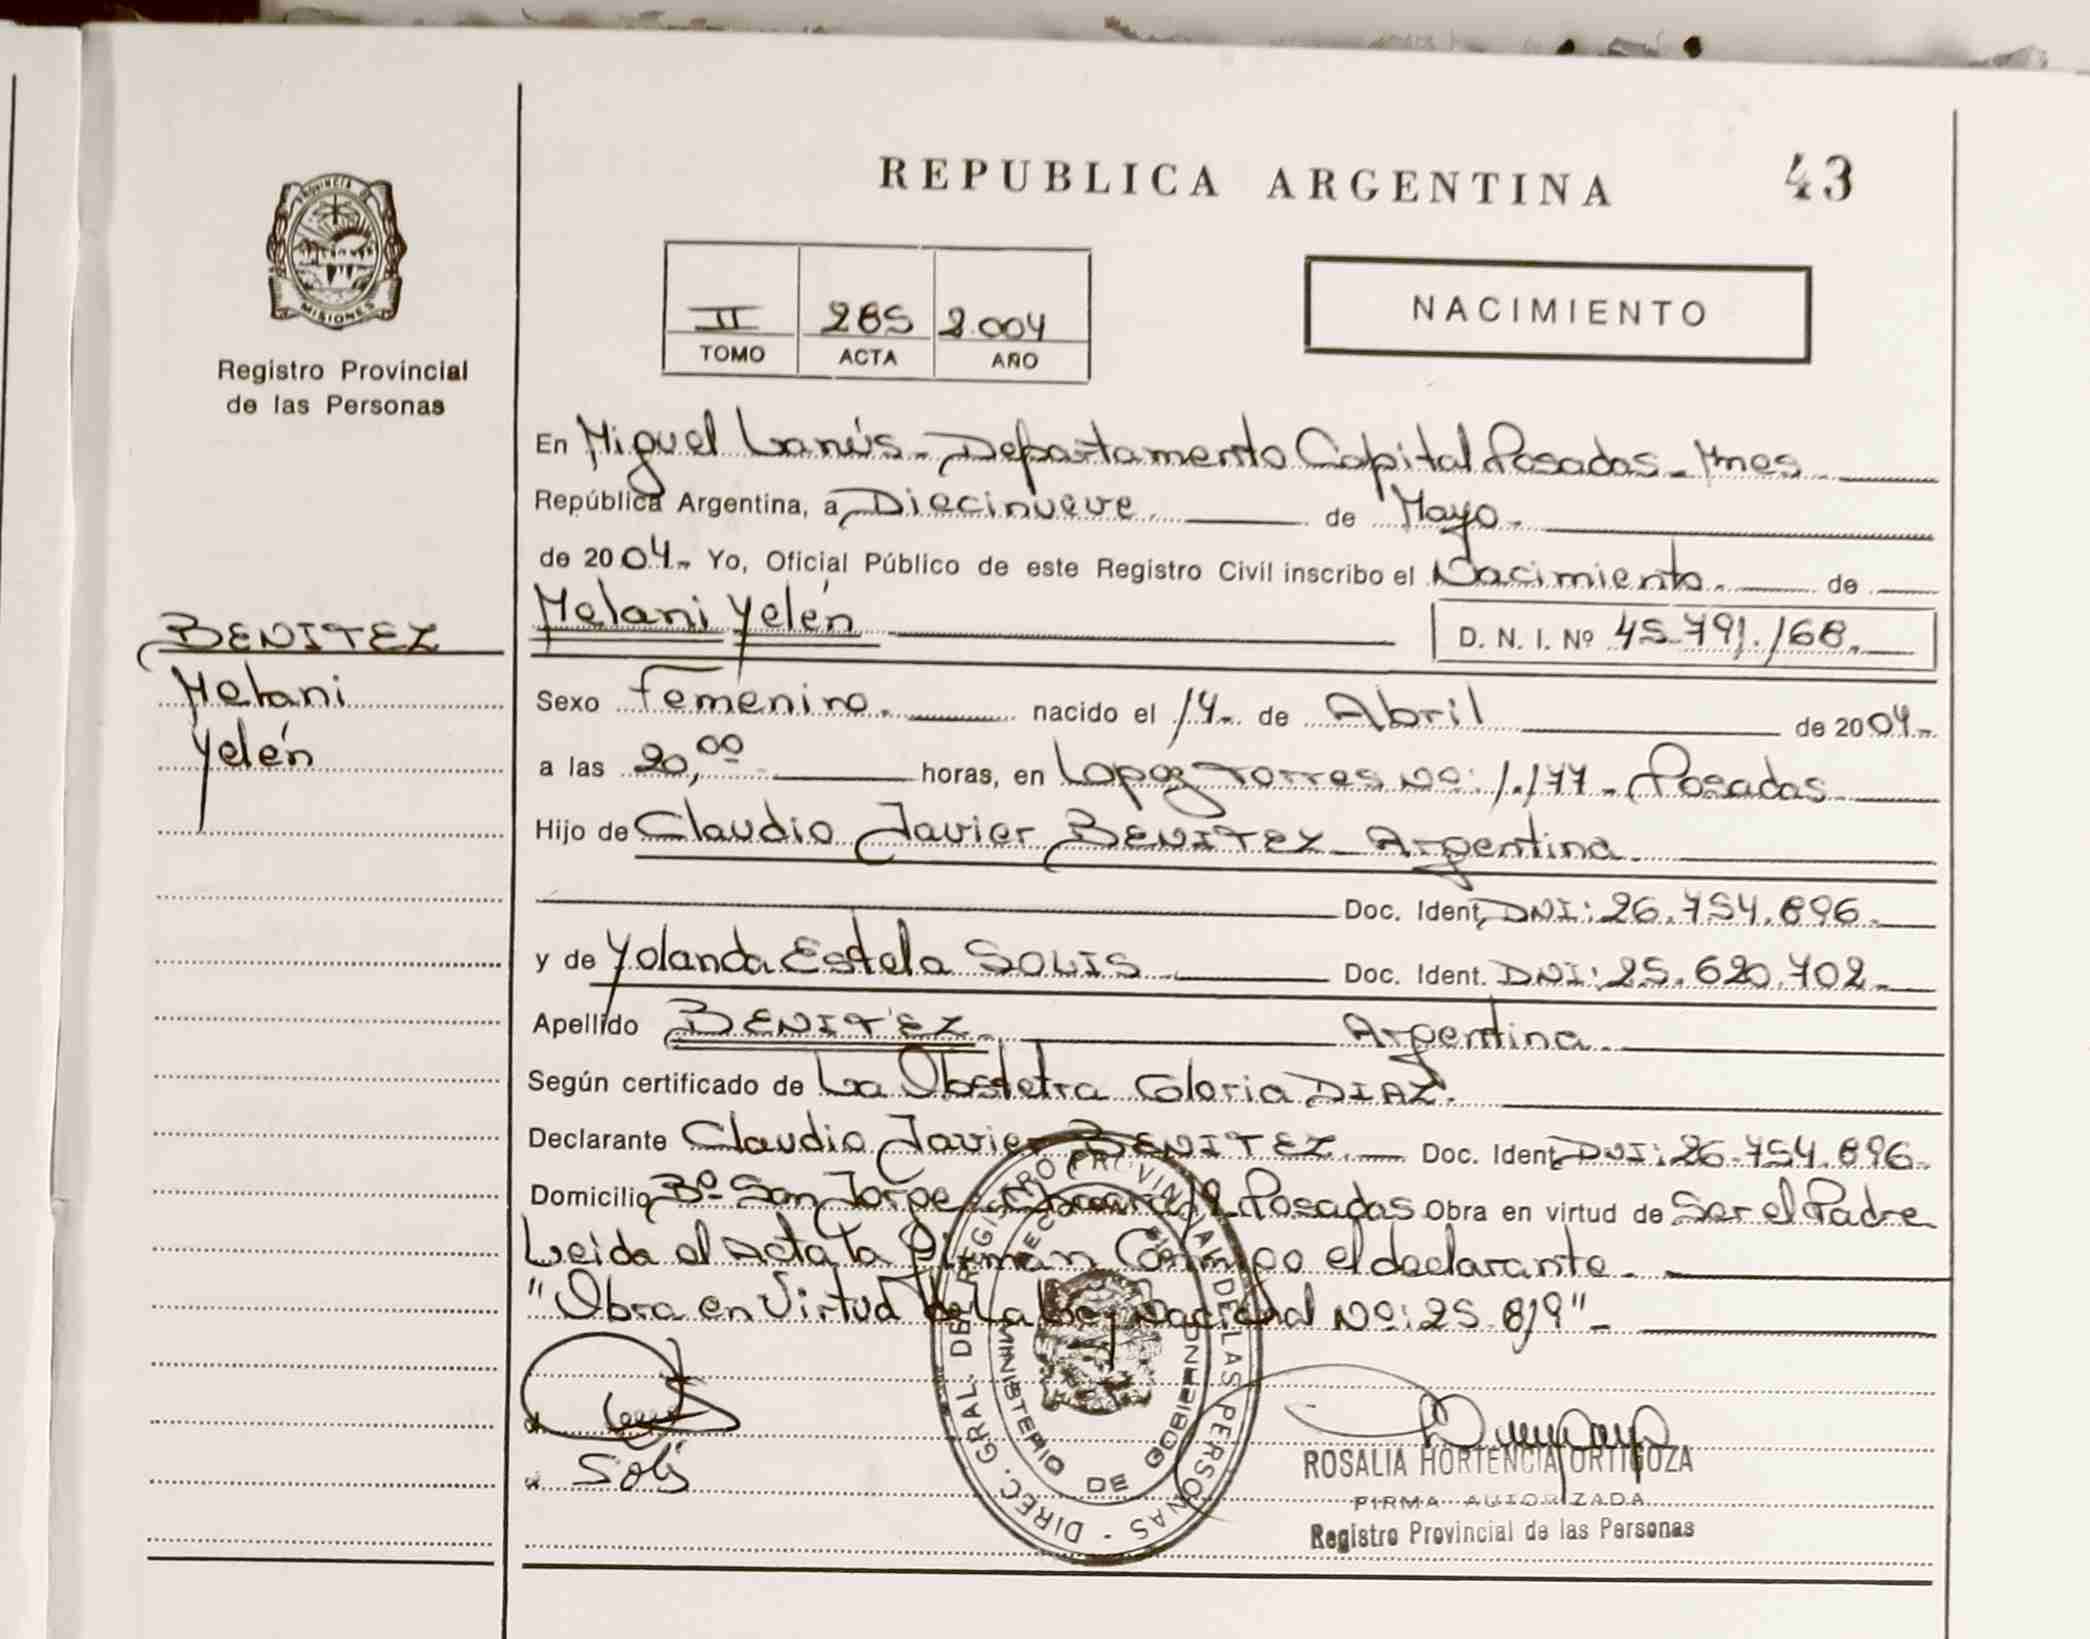 REPUBLICA ARGENTINA 43
PROVINCIA DE MISIONES
Registro Provincial
de las Personas
II 285 2.004
TOMO ACTA AÑO
NACIMIENTO
En Miguel Lanús - Departamento Capital Posadas - Mnes
República Argentina, a Diecinueve de Mayo.
de 2004.- Yo, Oficial Público de este Registro Civil inscribo el Nacimiento. de
Melani Yelén
D. N. I. Nº 45.791.168.
BENITEZ
Melani
Yelén
Sexo Femenino. nacido el 14. de Abril de 2004.-
a las 20,00 horas, en Lopez Torres Nº: 1.177 - Posadas
Hijo de Claudio Javier BENITEZ - Argentina
Doc. Ident. DNI: 26.754.896.
y de Yolanda Estela SOLIS Doc. Ident. DNI: 25.620.702.
Apellido BENITEZ. Argentina.
Según certificado de La Obstetra Gloria DIAZ.
Declarante Claudio Javier BENITEZ. Doc. Ident. DNI: 26.754.896.
Domicilio Bº San Jorge Posadas Obra en virtud de Ser el Padre
Leida el Acta la Firman Conmigo el declarante.
"Obra en Virtud de La Ley Nacional Nº: 25.819" -
Solis
DIREC. GRAL. DEL REGISTRO PROVINCIAL DE LAS PERSONAS
MINISTERIO DE GOBIERNO
ROSALIA HORTENCIA ORTIGOZA
FIRMA AUTORIZADA
Registro Provincial de las Personas